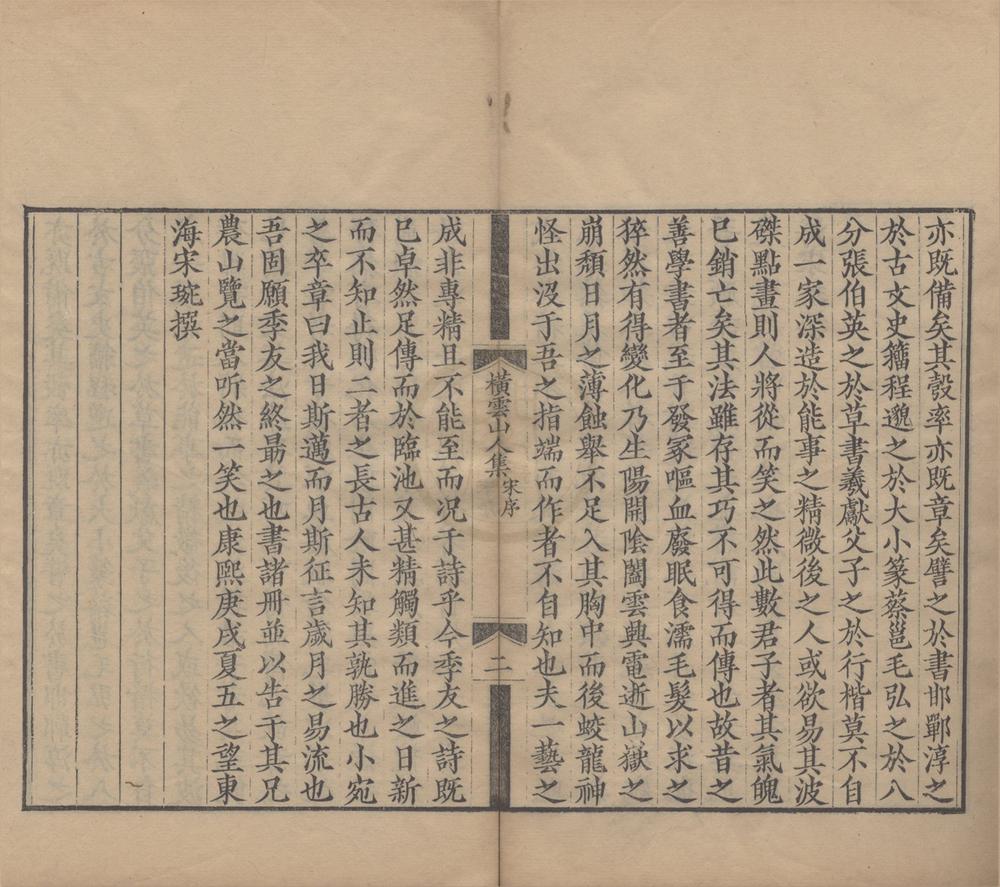 亦既備矣其彀率亦既章矣譬之於書邯鄲淳之
於古文史籀程邈之於大小篆蔡邕毛弘之於八
分張伯英之於草書羲獻父子之於行楷莫不自
成一家深造於能事之精微後之人或欲易其波
磔點畫則人將從而笑之然此數君子者其氣魄
已銷亡矣其法雖存其巧不可得而傳也故昔之
善學書者至于發冢嘔血廢眠食濡毛髮以求之
猝然有得變化乃生陽開陰闔雲興電逝山嶽之
崩頽日月之薄蝕舉不足入其胸中而後蛟龍神
怪出沒于吾之指端而作者不自知也夫一藝之
橫雲山人集 宋序 二
成非專精且不能至而况于詩乎今季友之詩既
已卓然足傳而於臨池又甚精觸類而進之日新
而不知止則二者之長古人未知其孰勝也小宛
之卒章曰我日斯邁而月斯征言歲月之易流也
吾固願季友之終朂之也書諸冊並以告于其兄
農山覽之當听然一笑也康熙庚戌夏五之望東
海宋琬撰